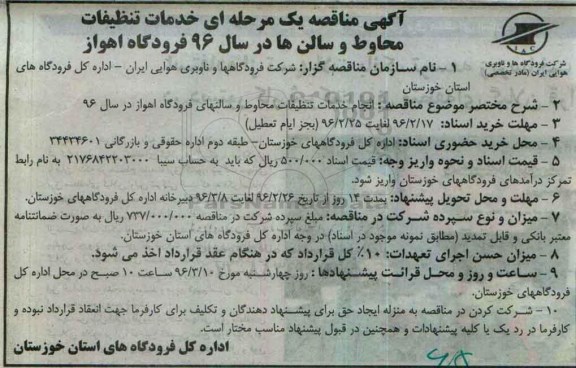 آگهی مناقصه یک مرحله ای خدمات تنظیفات
محاوط و سالن ها در سال ۹۶ فرودگاه اهواز
I.A.C
شرکت فرودگاه ها و ناوبری
هوایی ایران (مادر تخصصی)
۱ - نام سازمان مناقصه گزار: شرکت فرودگاهها و ناوبری هوایی ایران - اداره کل فرودگاه های
استان خوزستان
۲ - شرح مختصر موضوع مناقصه : انجام خدمات تنظیفات محاوط و سالنهای فرودگاه اهواز در سال ۹۶
۳ - مهلت خرید اسناد: ۹۶/۲/۱۷ لغایت ۹۶/۲/۲۵ (بجز ایام تعطیل)
۴ - محل خرید حضوری اسناد: اداره کل فرودگاههای خوزستان- طبقه دوم اداره حقوقی و بازرگانی ۳۴۴۳۴۶۰۱
۵ - قیمت اسناد و نحوه واریز وجه: قیمت اسناد ۵۰۰/۰۰۰ ریال که باید به حساب سیبا ۲۱۷۶۸۴۲۲۰۳۰۰۰ به نام رابط
تمرکز درآمدهای فرودگاههای خوزستان واریز شود.
۶ - مهلت و محل تحویل پیشنهاد: بمدت ۱۴ روز از تاریخ ۹۶/۲/۲۶ لغایت ۹۶/۳/۸ دبیرخانه اداره کل فرودگاههای خوزستان.
۷ - میزان و نوع سپرده شرکت در مناقصه: مبلغ سپرده شرکت در مناقصه ۷۳۷/۰۰۰/۰۰۰ ریال به صورت ضمانتنامه
معتبر بانکی و قابل تمدید (مطابق نمونه موجود در اسناد) در وجه اداره کل فرودگاه های استان خوزستان.
۸ - میزان حسن اجرای تعهدات: ۱۰٪ کل قرارداد که در هنگام عقد قرارداد اخذ می شود.
۹ - ساعت و روز و محل قرائت پیشنهادها : روز چهارشنبه مورخ ۹۶/۳/۱۰ ساعت ۱۰ صبح در محل اداره کل
فرودگاههای خوزستان.
۱۰ - شرکت کردن در مناقصه به منزله ایجاد حق برای پیشنهاد دهندگان و تکلیف برای کارفرما جهت انعقاد قرارداد نبوده و
کارفرما در رد یک یا کلیه پیشنهادات و همچنین در قبول پیشنهاد مناسب مختار است.
اداره کل فرودگاه های استان خوزستان